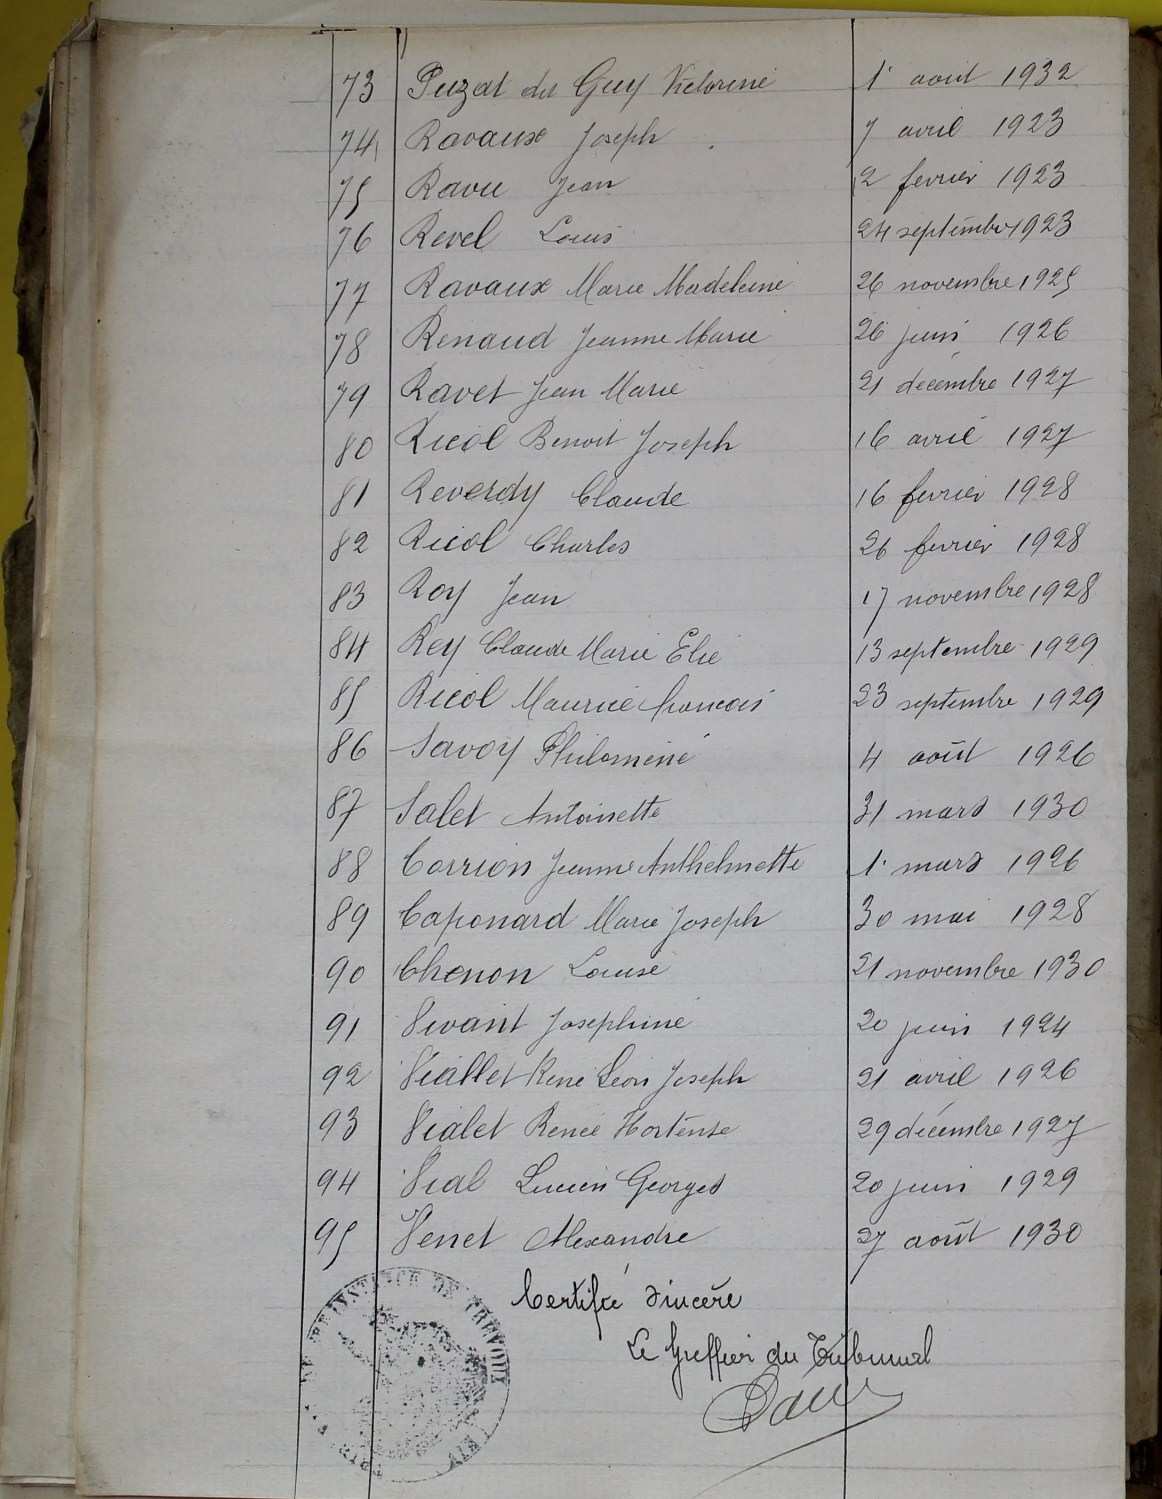 73 Puzat dit Guy Victorine 1er août 1932
74 Ravaux Joseph 7 avril 1923
75 Ravu Jean 2 fevrier 1923
76 Revel Louis 24 septembre 1923
77 Ravaux Marie Madeleine 26 novembre 1925
78 Renaud Jeanne Marie 26 juin 1926
79 Ravet Jean Marie 21 décembre 1927
80 Ricol Benoit Joseph 16 avril 1927
81 Reverdy Claude 16 fevrier 1928
82 Ricol Charles 26 fevrier 1928
83 Roy Jean 17 novembre 1928
84 Rey Claude Marie Elie 13 septembre 1929
85 Ricol Maurice francois 23 septembre 1929
86 Savoy Philomène 4 août 1926
87 Salet Antoinette 31 mars 1930
88 Corrion Jeanne Anthelmette 1er mars 1926
89 Caponard Marie Joseph 30 mai 1928
90 Chenon Louise 21 novembre 1930
91 Vivant Josephine 20 juin 1924
92 Viallet René Léon Joseph 21 avril 1926
93 Vialet Renée Hortense 29 décembre 1927
94 Vial Lucien Georges 20 juin 1929
95 Venet Alexandre 27 août 1930
Certifié sincère
Le Greffier du Tribunal
INSTANCE DE TREVOUX
AIN